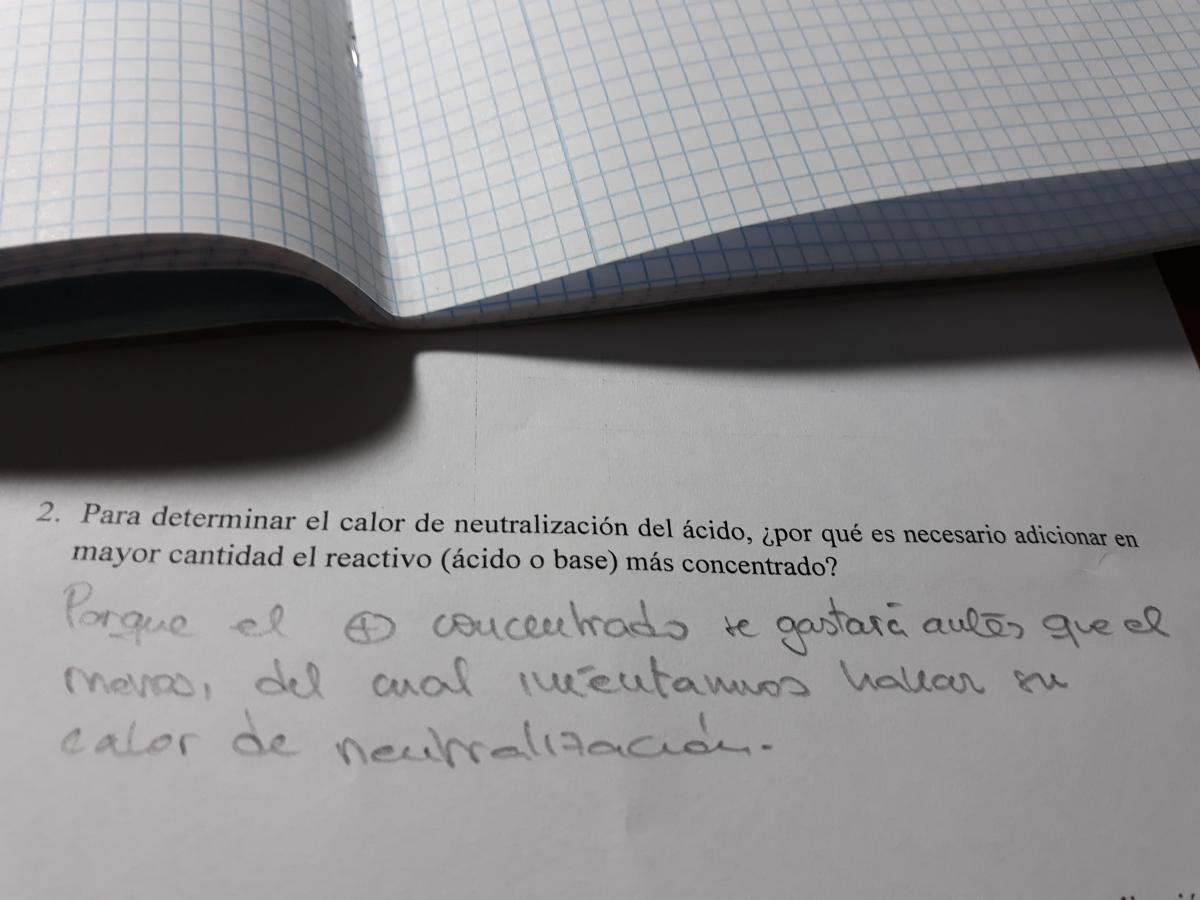 2. Para determinar el calor de neutralización del ácido, ¿por qué es necesario adicionar en
mayor cantidad el reactivo (ácido o base) más concentrado?
Porque el ⊕ concentrado se gastará antes que el
menos, del cual intentamos hallar su
calor de neutralización.